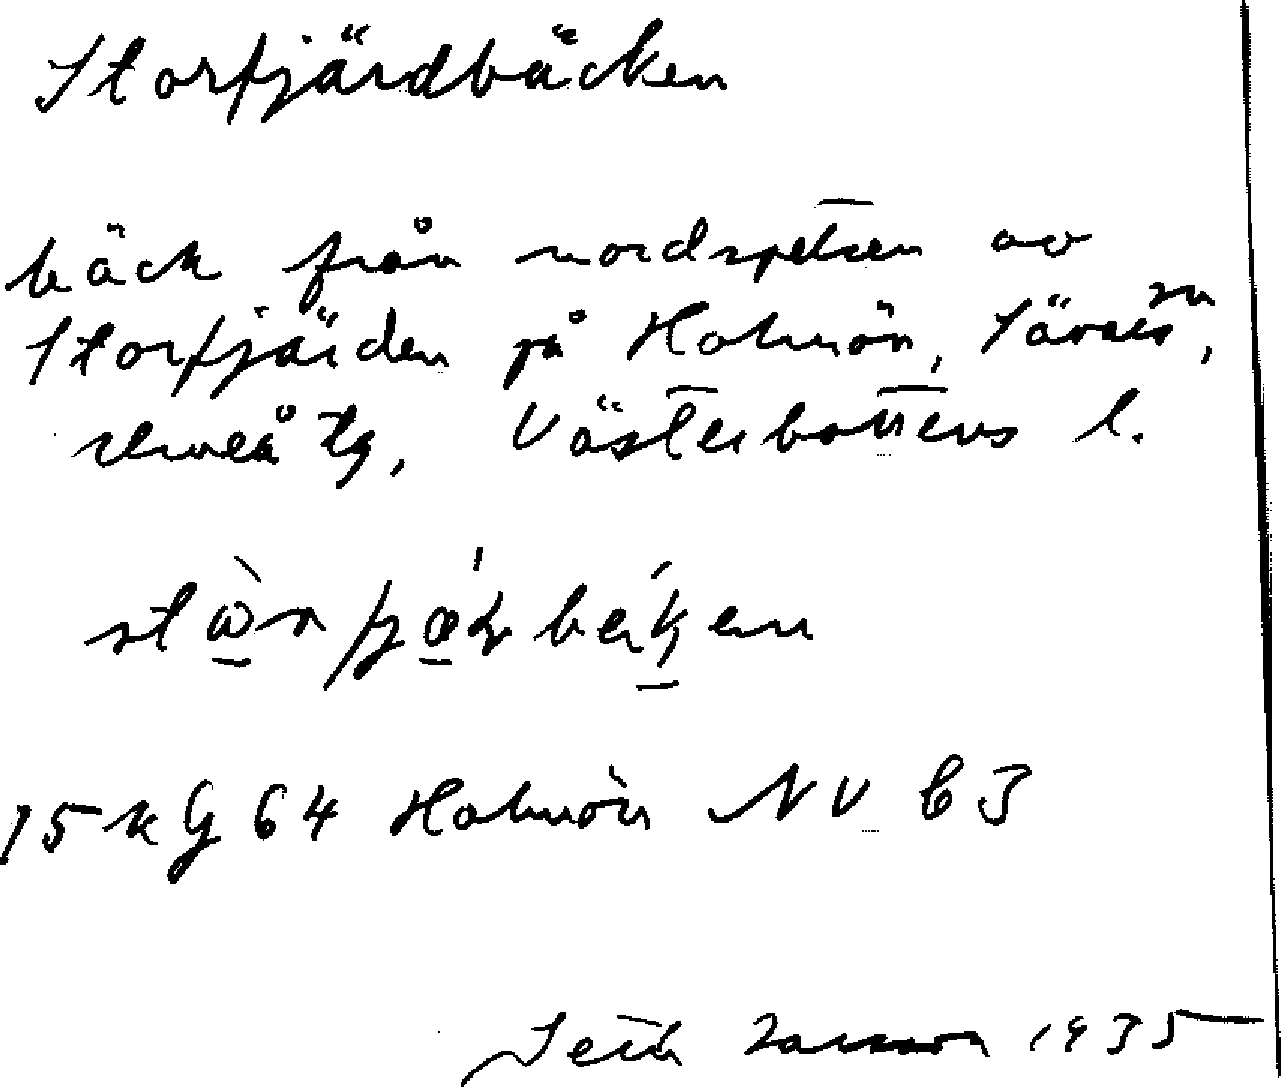 Storfjärdbäcken
bäck från nordspetsen av
Storfjärden på Holmön, Sävars sn,
Umeå tg, Västerbottens l.
15 k G 64 Holmön NV 63
Seth Larsson 1935